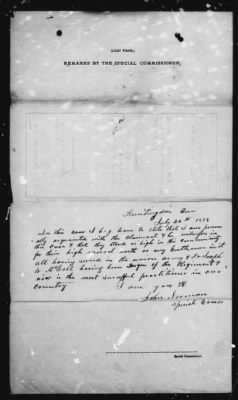 (LAST PAGE.)
REMARKS BY THE SPECIAL COMMISSIONER.
Huntingdon Ten
July 20th 1878
In this case I beg leave to state that I am person
ally acquainted with the Claimant & his witnesses in
this case & that they stand as high in the community
for their high moral worth as any Gentlemen in it
all having served in the union army & Dr Joseph
W McCall having been Surgeon of the Regiment &
now is the most successful practitioner in our
Country I am yours &c
John Norman
Special Comr
Special Commissioner.